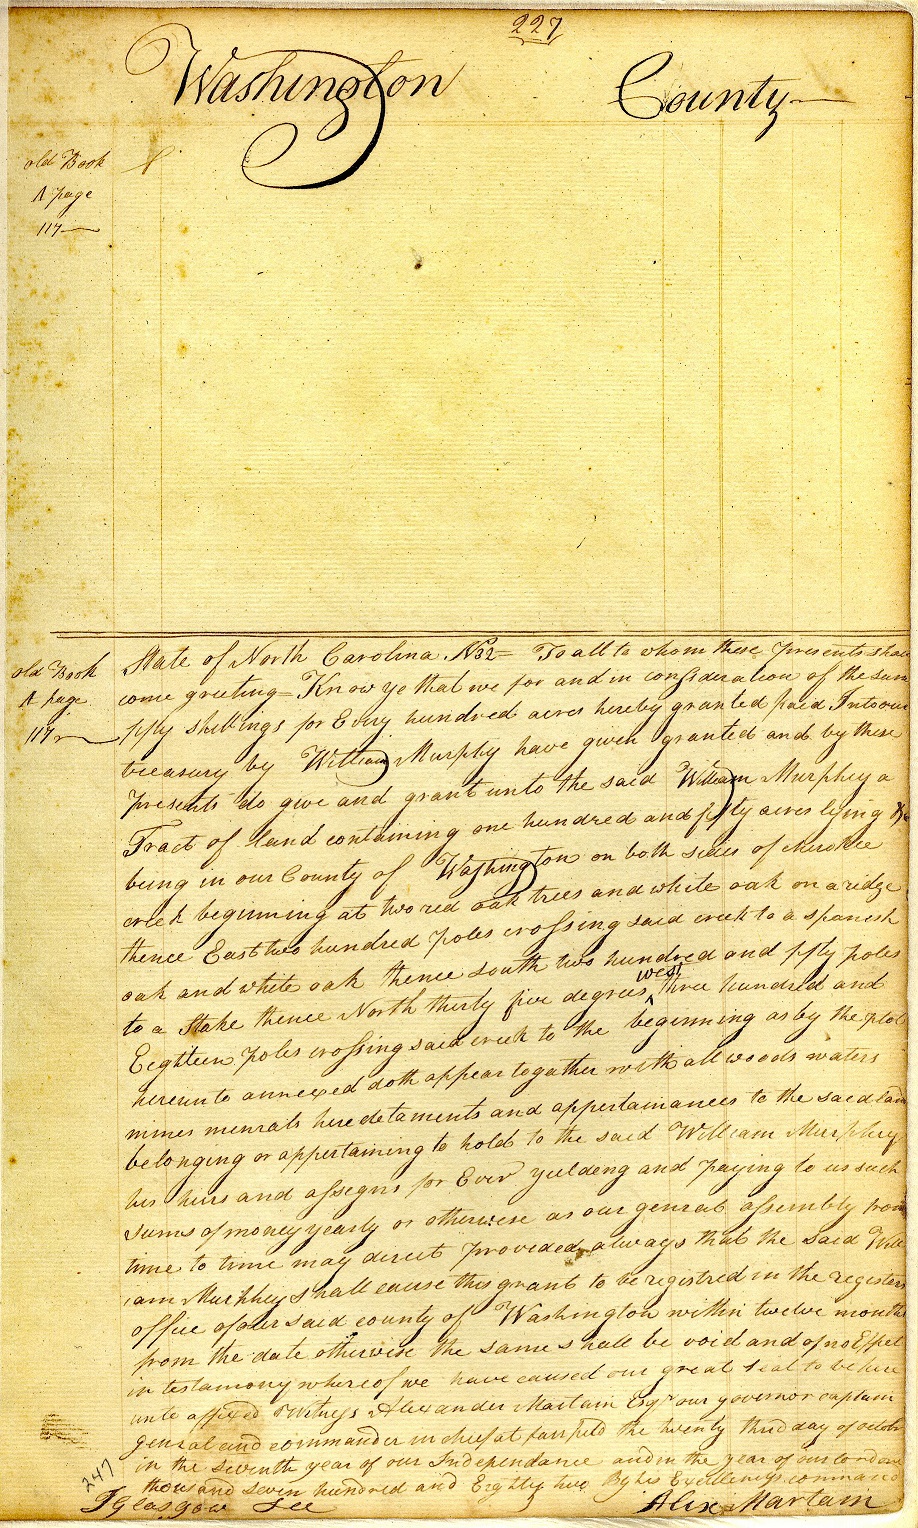 227
Washington County
old Book
A page
117
old Book
A page
117
State of North Carolina No 2 = To all to whom these presents shall
come greeting = Know ye that we for and in consideration of the sum
fifty shillings for Every hundred acres hereby granted paid Into our
treasury by William Murphy have given granted and by these
presents do give and grant unto the said William Murphey a
Tract of land containing one hundred and fifty acres lying &
being in our County of Washington on both sides of cherokee
creek beginning at two red oak trees and white oak on a ridge
thence East two hundred poles crossing said creek to a spanish
oak and white oak thence South two hundred and fifty poles
to a Stake thence North thirty five degrees west three hundred and
Eighteen poles crossing said creek to the beginning as by the plot
hereunto annexed doth appear togather with all woods waters
mines menrals heredetaments and appertainances to the said land
belonging or appertaining to hold to the said William Murphey
his heirs and assegns for Ever yeildeng and paying to us such
sums of money yearly or otherwese as our genral assembly from
time to time may direct provided always that the said Will
iam Murphey shall cause this grant to be registred in the registers
office of our said county of Washington within twelve months
from the date otherwise the same shall be void and of no Effect
in testamony whereof we have caused our great seal to be here
unto affixed Witness Alexander Martain Esqr our governor captain
genral and commander in cheef at fairfield the twenty third day of octob
in the seventh year of our Independance and in the year of our Lord one
thousand seven hundred and Eighty two By his Excellencys command
J Glasgow See Alex Martain
247